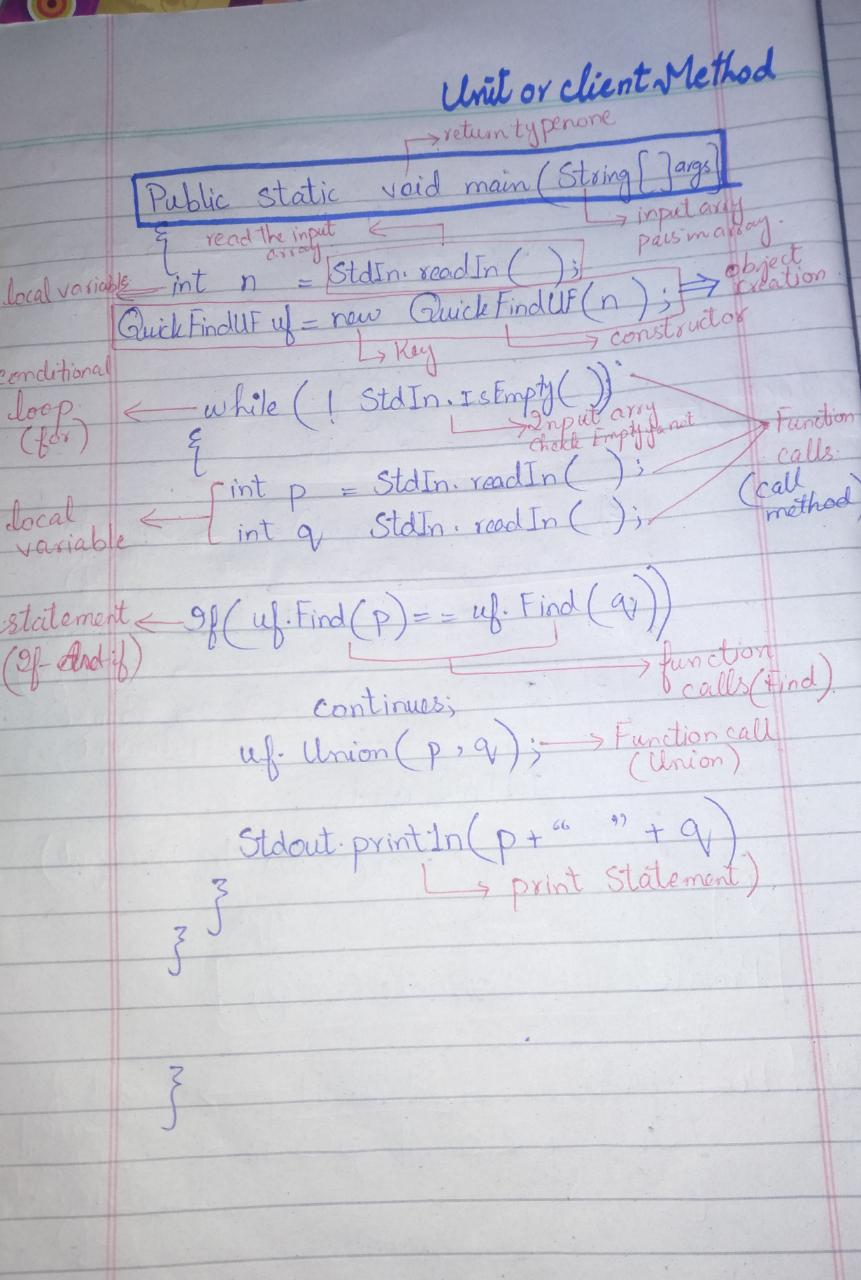 Unit or client Method
returntypenone
Public static void main (String [ ] args]
{
read the input
array
input arry
pass m array.
local variable
int n = StdIn. readIn ( );
object
creation
QuickFindUF uf = new QuickFindUF (n) ;
Key
constructor
conditional
loop
(for)
while ( ! StdIn. IsEmpty ( ))
Input arry
check Empty or not
{
Function
calls.
(call
method)
int p = StdIn. readIn ( );
int q StdIn. readIn ( );
local
variable
statement
(If- And if)
If( uf. Find (p) = = uf. Find (q))
function
calls (find)
continues;
uf. Union (p, q);
Function call
(Union)
Stdout. println (p + “ ” + q)
print Statement)
}
}
}